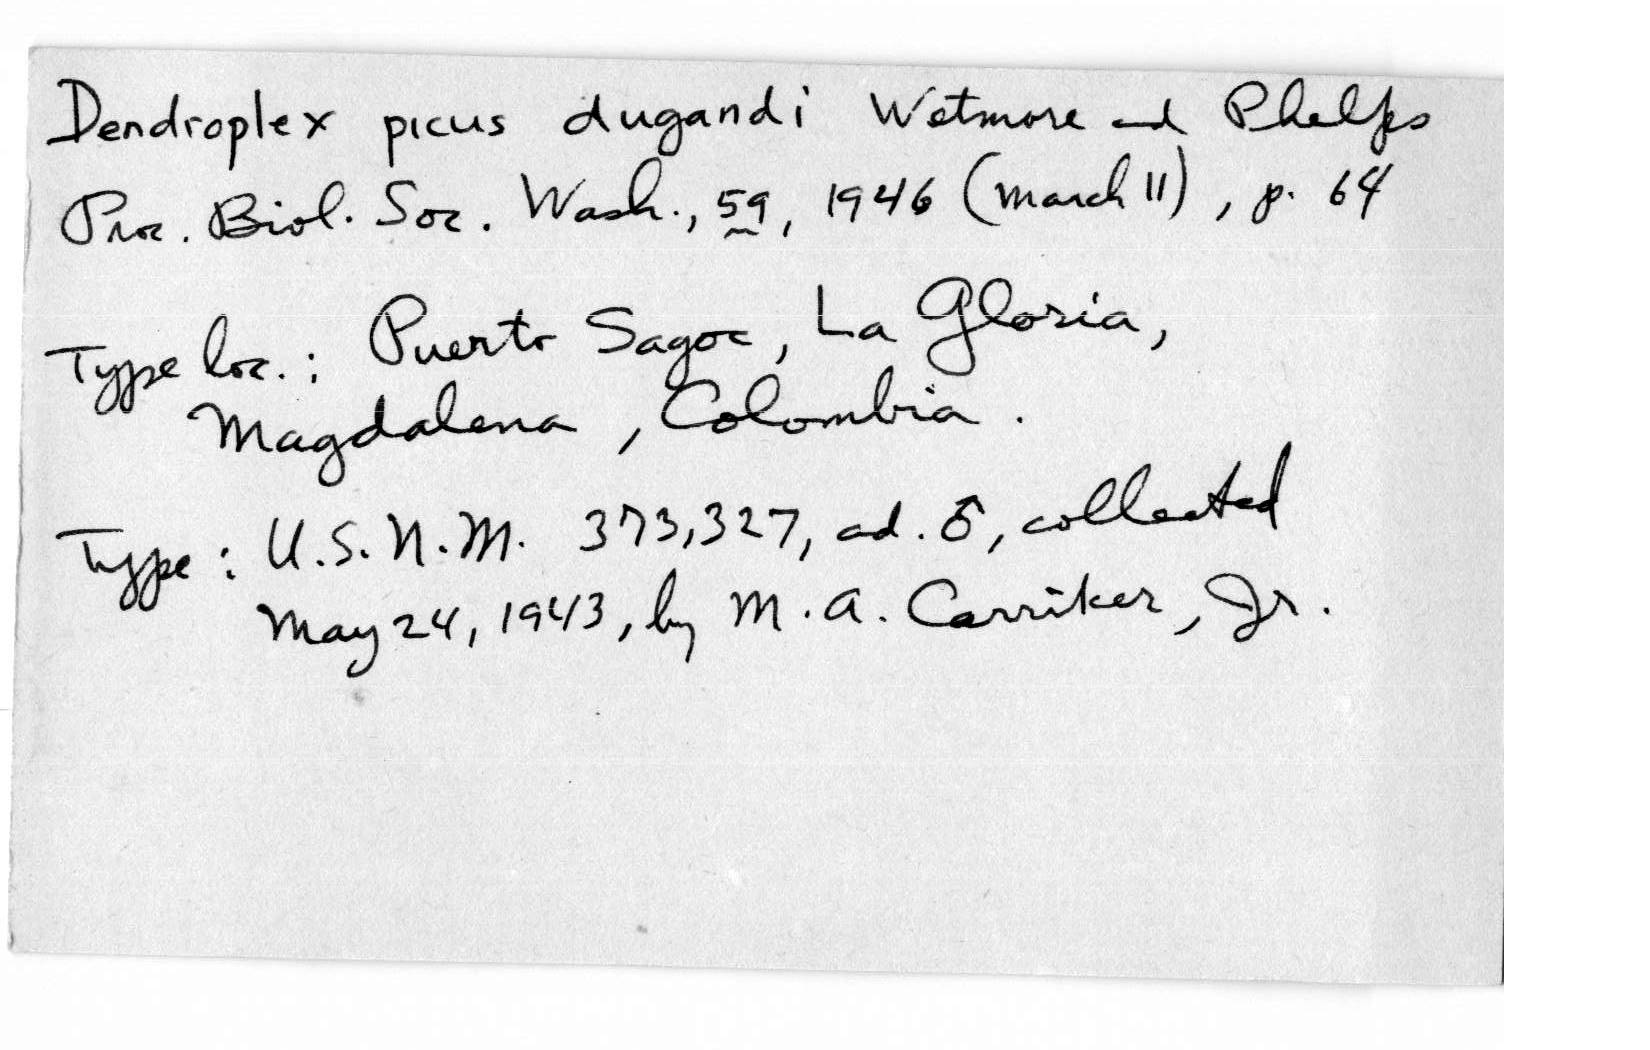 Dendroplex picus dugandi Wetmore and Phelps
Proc. Biol. Soc. Wash., 59, 1946 (March 11), p. 64
Type loc.: Puerto Sagoc, La Gloria,
Magdalena, Colombia.
Type: U.S.N.M. 373,327, ad. ♂, collected
May 24, 1943, by M. A. Carriker, Jr.